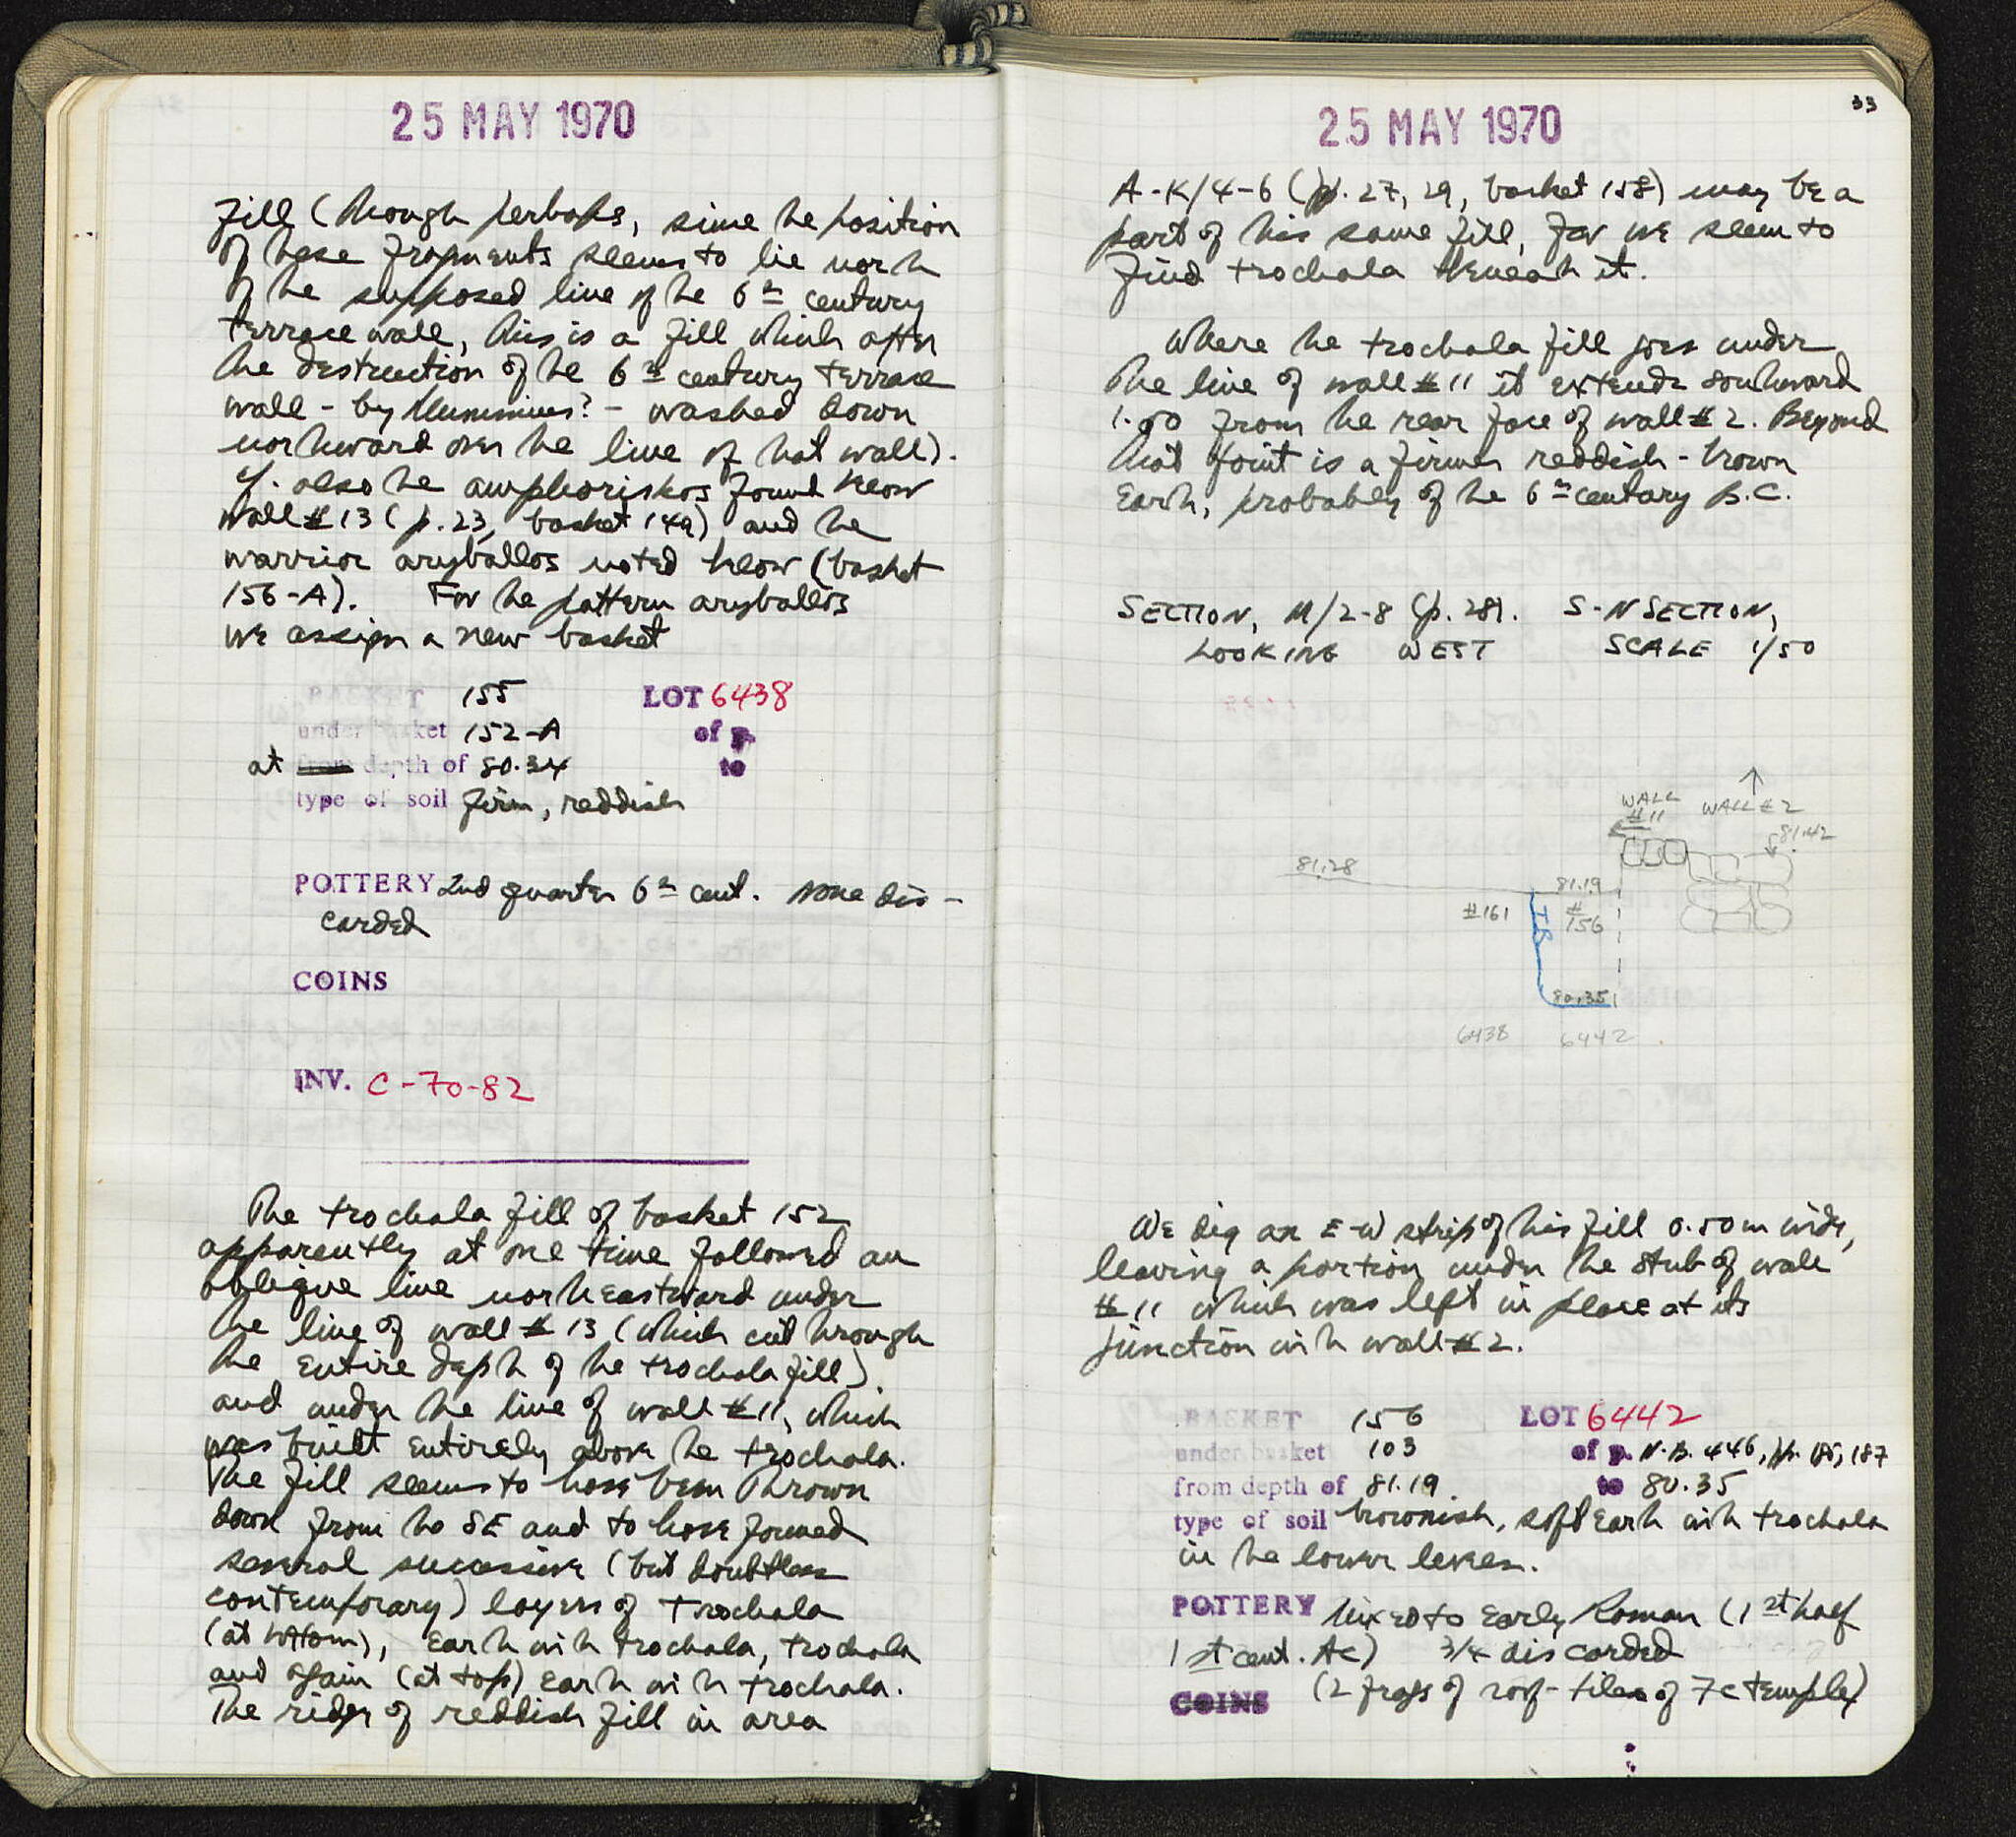 25 MAY 1970
fill (though perhaps, since the position
of these fragments seems to lie north
of the supposed line of the 6th century
terrace wall, this is a fill which after
the destruction of the 6th century terrace
wall - by Mummius? - washed down
northward over the line of that wall).
Cf. also the amphoriskos found below
wall #13 (p. 23, basket 149) and the
warrior aryballos noted below (basket
156-A). For the pattern aryballos
we assign a new basket
BASKET 155 LOT 6438
under basket 152-A of p.
at from depth of 80.34 to
type of soil firm, reddish
POTTERY 2nd quarter 6th cent. none dis-
carded
COINS
INV. C-70-82
The trochala fill of basket 152
apparently at one time followed an
oblique line northeastward under
the line of wall #13 (which cut through
the entire depth of the trochala fill)
and under the line of wall #11, which
was built entirely above the trochala.
The fill seems to have been thrown
down from the SE and to have formed
several successive (but doubtless
contemporary) layers of trochala
(at bottom), earth with trochala, trochala
and again (at top) earth with trochala.
The ridge of reddish fill in area
33
25 MAY 1970
A-K/4-6 (pp. 27, 29, basket 158) may be a
part of this same fill, for we seem to
find trochala beneath it.
Where the trochala fill goes under
the line of wall #11 it extends southward
from the rear face of wall #2. Beyond
that point is a firmer reddish-brown
earth, probably of the 6th century B.C.
SECTION, M/2-8 (p. 28). S-N SECTION,
LOOKING WEST SCALE 1/50
WALL #11
WALL #2
81.42
81.28
81.19
#161
#156
80.35
6438 6442
We dig an E-W strip of this fill 0.50m wide,
leaving a portion under the stub of wall
#11 which was left in place at its
junction with wall #2.
BASKET 156 LOT 6442
under basket 103 of p. N.B. 446, pp. 187
from depth of 81.19 to 80.35
type of soil brownish, soft earth with trochala
in the lower levels.
POTTERY Mixed to Early Roman (1st half
1st cent. AC) 3/4 discarded
(2 frags of roof-tiles of 7c temple)
COINS